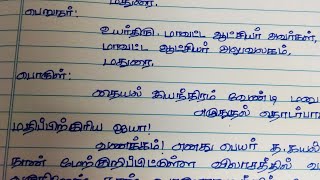 மதுரை.
பெறுநர்:
உயர்திரு. மாவட்ட ஆட்சியர் அவர்கள்,
மாவட்ட ஆட்சியர் அலுவலகம்,
மதுரை.
பொருள்:
தையல் இயந்திரம் வேண்டி மனு
எழுதுதல் தொடர்பாக
மதிப்பிற்குரிய ஐயா!
வணக்கம்! எனது பெயர் த.
நான் மேற்குறிப்பிட்டுள்ள விலாசத்தில்